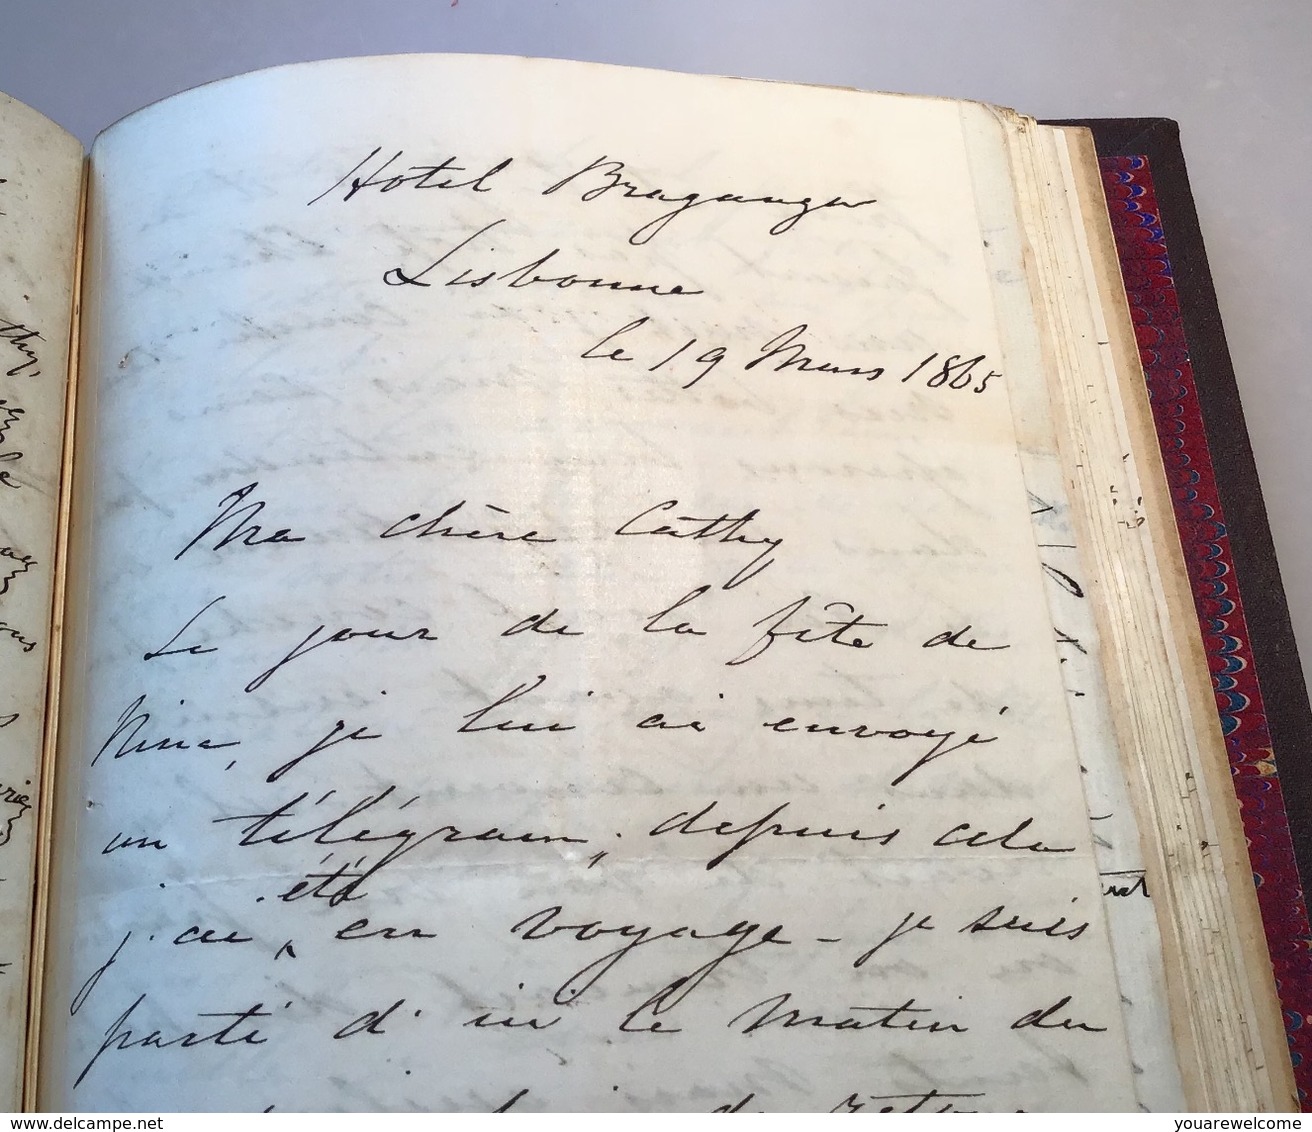 Hotel Braganza
Lisbonne
le 19 Mars 1865
Ma chère Cathy
Le jour de la fête de
Nina, je lui ai envoyé
un télégram, depuis cela
été
j'ai en voyage - je suis
parti d'ici le matin du
de retour
delcampe.net
youarewelcome